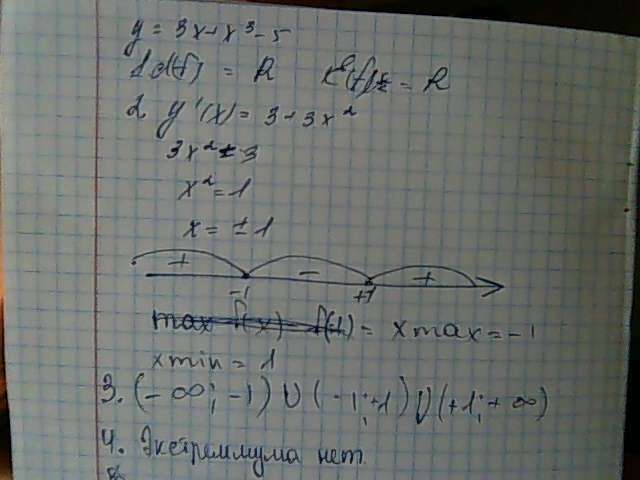 y = 3x+x³-5
1 d(f) = R E(f) = R
2 y'(x) = 3+3x²
3x² = 3
x² = 1
x = ±1
+ - +
-1 +1
max f(x) f(1) = xmax = -1
xmin = 1
3. (-∞; -1) U (-1; +1) U (+1; +∞)
4. Экстремлума нет